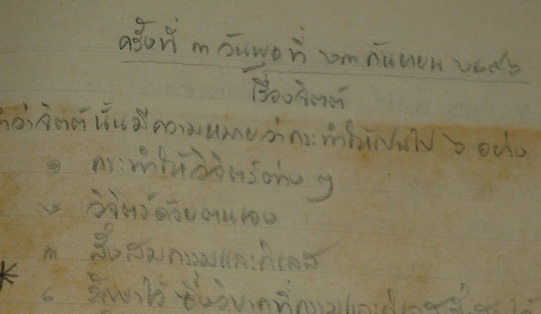 ครั้งที่ ๓ วันพุธที่ ๒๓ กันยายน ๒๔๙๖
เรื่องจิตต์
คำว่าจิตต์นั้นมีความหมายว่ากระทำให้เป็นไป ๖ อย่าง
๑ กระทำให้วิจิตร์ต่าง ๆ
๒ วิจิตร์ด้วยตนเอง
๓ สั่งสมกรรมและกิเลส
๔ รักษาไว้ ซึ่งวิบากที่กรรมและกิเลสสั่งสมไว้